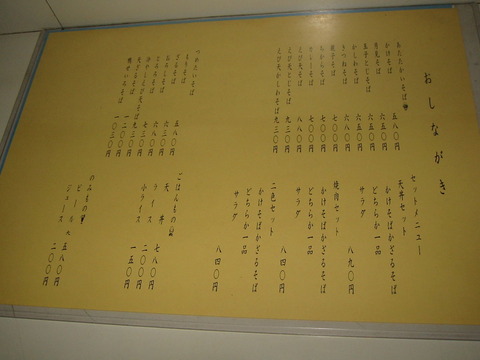 おしながき
あたたかいそば
かけそば 五八〇円
月見そば 六五〇円
玉子とじそば 六五〇円
かしわそば 六五〇円
きつねそば
親子そば 七〇〇円
七〇〇円
カレーそば 七〇〇円
えび天そば 八八〇円
えび天とじそば 九三〇円
えび天かしわそば 九三〇円
つめたいそば
もりそば 五八〇円
ざるそば
おろしそば
とろろそば
一〇三〇円
セットメニュー
天丼セット
かけそばかざるそば
どちらか一品
サラダ 八九〇円
焼肉セット
かけそばかざるそば
どちらか一品
サラダ 八四〇円
二色セット
かけそばかざるそば
どちらか一品
サラダ 八四〇円
ごはんもの
天丼 七八〇円
ライス 二〇〇円
小ライス 一五〇円
のみもの
ビール 五八〇円
ジュース 二〇〇円